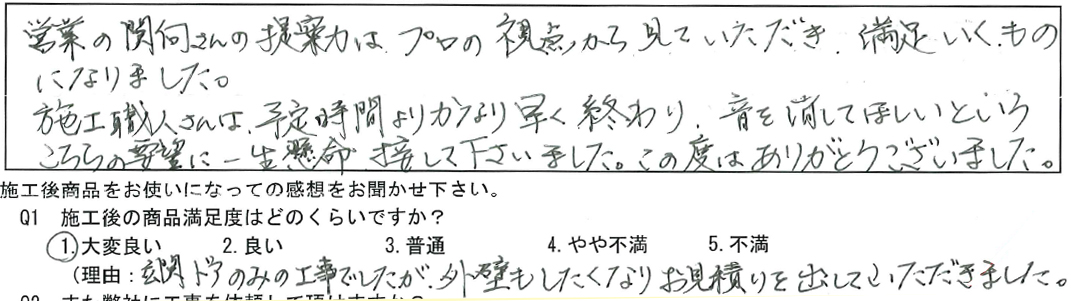 営業の関何さんの提案力は、プロの視点から見ていただき、満足いくもの
になりました。
施工職人さんは、予定時間よりかなり早く終わり、音を消してほしいという
こちらの要望に一生懸命接して下さいました。この度はありがとうございました。
施工後商品をお使いになっての感想をお聞かせ下さい。
Q1 施工後の商品満足度はどのくらいですか？
1.大変良い 2.良い 3.普通 4.やや不満 5.不満
(理由:玄関ドアのみの工事でしたが、外壁もしたくなりお見積りを出していただきました。